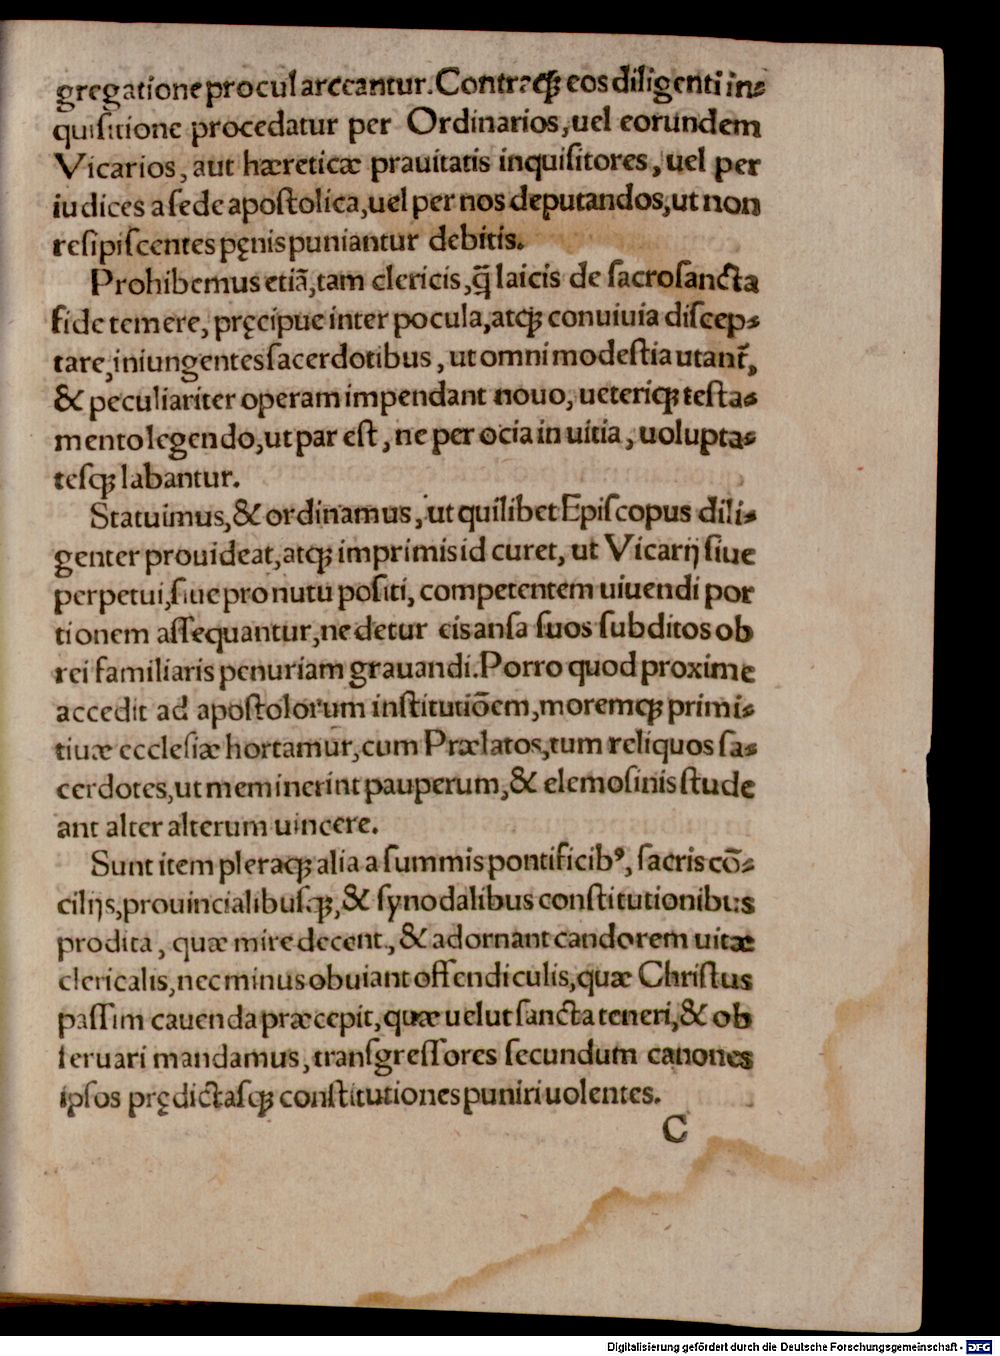 gregatione procul arceantur. Contraq́ꝫ eos diligenti in⸗
quiſitione procedatur per Ordinarios, uel eorundem
Vicarios, aut hæreticæ prauitatis inquiſitores, uel per
iudices a ſede apoſtolica, uel per nos deputandos, ut non
reſipiſcentes pęnis puniantur debitis.
Prohibemus etiã, tam clericis, q̃ laicis de ſacroſancta
fide temere, pręcipue inter pocula, atqꝫ conuiuia diſcep⸗
tare, iniungentes ſacerdotibus, ut omni modeſtia utant᷑,
& peculiariter operam impendant nouo, ueteriqꝫ teſta⸗
mento legendo, ut par eſt, ne per ocia in uitia, uolupta⸗
teſqꝫ labantur.
Statuimus, & ordinamus, ut quilibet Epiſcopus dili⸗
genter prouideat, atqꝫ imprimis id curet, ut Vicarij ſiue
perpetui, ſiue pro nutu poſiti, competentem uiuendi por
tionem aſſequantur, ne detur eis anſa ſuos ſubditos ob
rei familiaris penuriam grauandi. Porro quod proxime
accedit ad apoſtolorum inſtitutiõem, moremqꝫ primi⸗
tiuæ eccleſiæ hortamur, cum Prælatos, tum reliquos ſa⸗
cerdotes, ut meminerint pauperum, & elemoſinis ſtude
ant alter alterum uincere.
Sunt item pleraqꝫ alia a ſummis pontificibꝰ, ſacris cõ⸗
cilijs, prouincialibuſqꝫ, & ſynodalibus conſtitutionibus
prodita, quæ mire decent, & adornant candorem uitæ
clericalis, nec minus obuiant offendiculis, quæ Chriſtus
paſſim cauenda præcepit, quæ uelut ſancta teneri, & ob
ſeruari mandamus, tranſgreſſores ſecundum canones
ipſos prędictaſqꝫ conſtitutiones puniri uolentes.
C
Digitalisierung gefördert durch die Deutsche Forschungsgemeinschaft - DFG